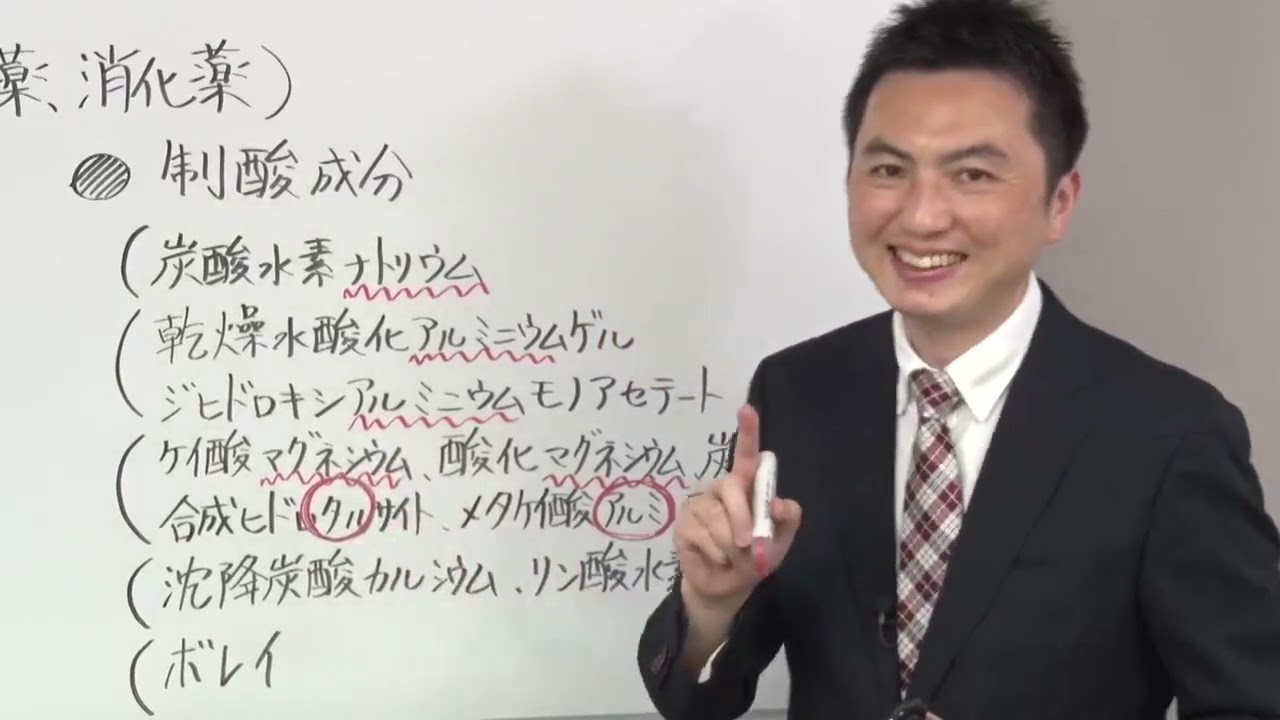 薬、消化薬)
制酸成分
(炭酸水素ナトリウム
(乾燥水酸化アルミニウムゲル
ジヒドロキシアルミニウムモノアセテート
(ケイ酸マグネシウム、酸化マグネシウム、炭
合成ヒドロタルサイト、メタケイ酸アルミ
(沈降炭酸カルシウム、リン酸水素
(ボレイ